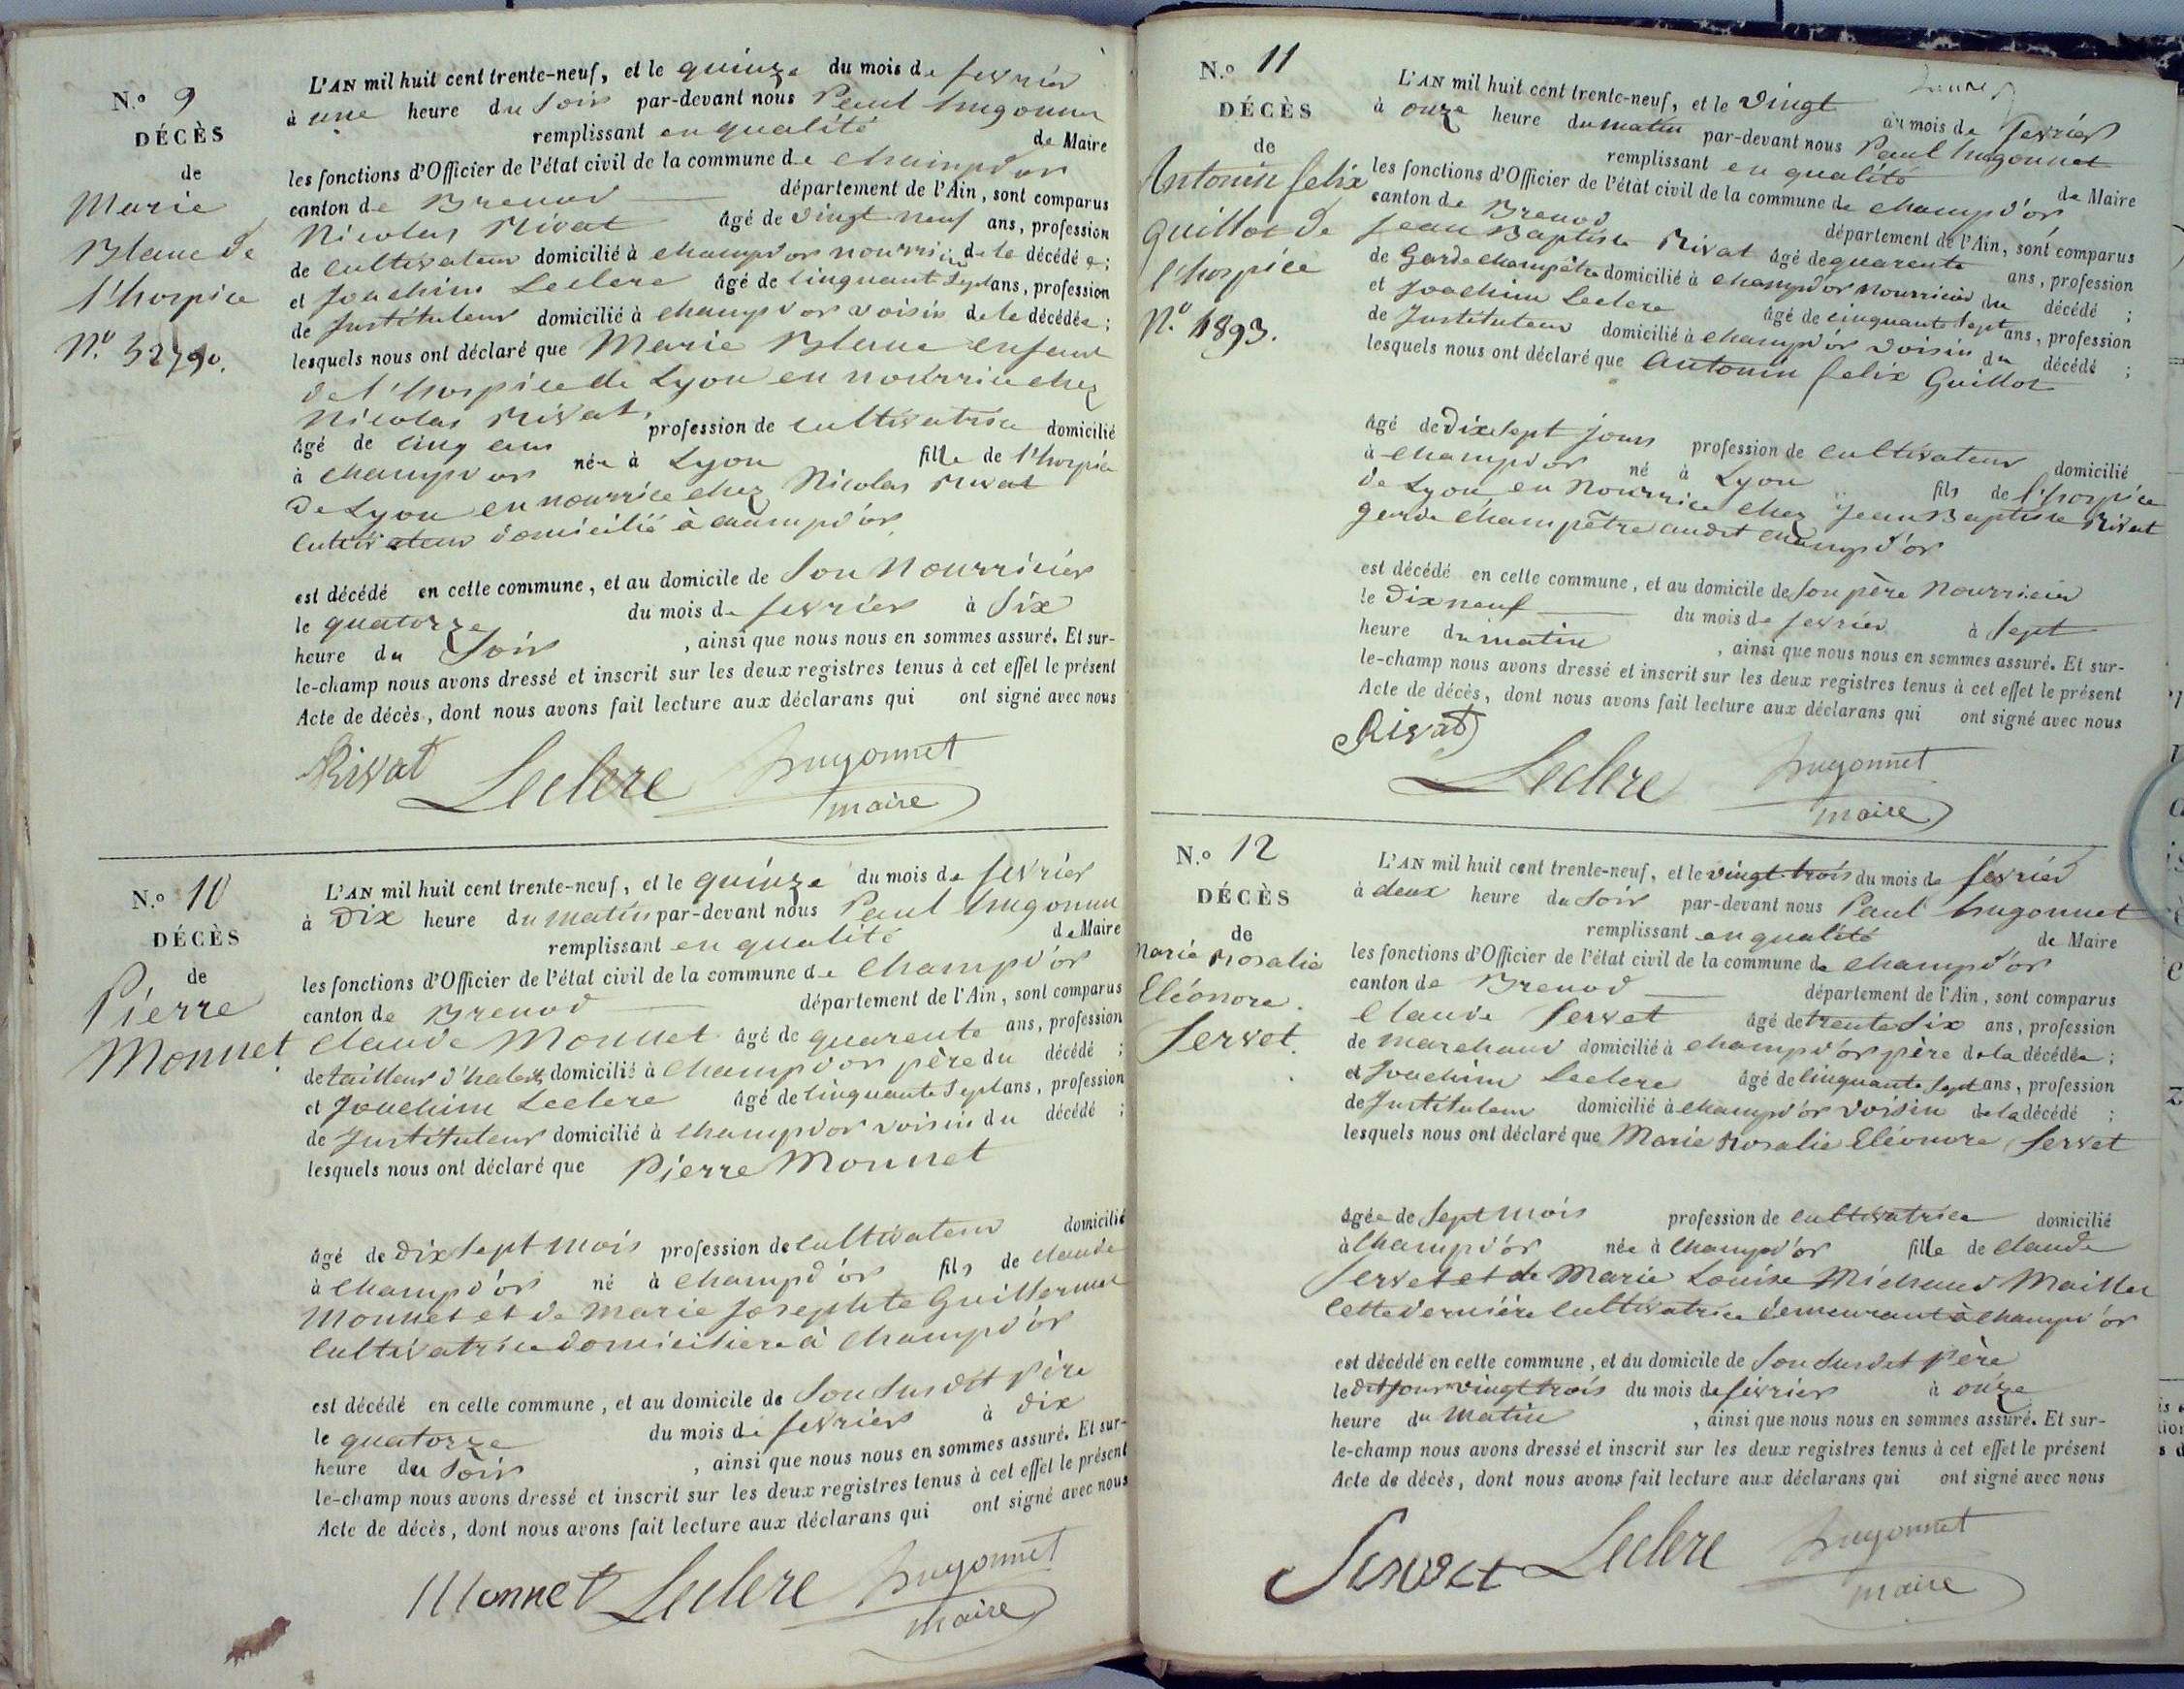 N.º 9
DÉCÈS
de
Marie
Blanc de
l'hospice
N.º
L'AN mil huit cent trente-neuf, et le quinze du mois de fevrier
à une heure du Soir par-devant nous Paul hugonnet
remplissant en qualité de Maire
les fonctions d'Officier de l'état civil de la commune de champd'or
canton de Brenod département de l'Ain, sont comparus
Nicolas Rivat âgé de vingt neuf ans, profession
de cultivateur domicilié à champd'or nourricier de la décédée;
et Joachim Leclerc âgé de cinquante Sept ans, profession
de Instituteur domicilié à champd'or voisin de la décédée;
lesquels nous ont déclaré que Marie Blanc enfant
de l'hospice de Lyon en nourrice chez
Nicolas Rivat,
âgé de cinq ans profession de cultivatrice domicilié
à champd'or née à Lyon fille de l'hospice
de Lyon en nourrice chez Nicolas Rivat
cultivateur domicilié à champd'or
est décédé en cette commune, et au domicile de Son Nourricier
le quatorze du mois de fevrier à Six
heure du Soir, ainsi que nous nous en sommes assuré. Et sur-
le-champ nous avons dressé et inscrit sur les deux registres tenus à cet effet le présent
Acte de décès, dont nous avons fait lecture aux déclarans qui ont signé avec nous
Rivat Leclerc hugonnet
maire
N.º 10
DÉCÈS
de
Pierre
Monnet
L'AN mil huit cent trente-neuf, et le quinze du mois de fevrier
à Dix heure du matin par-devant nous Paul hugonnet
remplissant en qualité de Maire
les fonctions d'Officier de l'état civil de la commune de Champd'or
canton de Brenod département de l'Ain, sont comparus
Claude Monnet âgé de quarente ans, profession
de tailleur d'habits domicilié à Champd'or père du décédé;
et Joachim Leclerc âgé de cinquante Sept ans, profession
de Instituteur domicilié à champd'or voisin du décédé;
lesquels nous ont déclaré que Pierre Monnet
âgé de dix Sept mois profession de cultivateur domicilié
à Champd'or né à champd'or fils de claude
Monnet et de marie Josephte Guillermet
cultivatrice domiciliere à champd'or
est décédé en cette commune, et au domicile de Son Susdit Père
le quatorze du mois de fevrier à dix
heure du Soir, ainsi que nous nous en sommes assuré. Et sur-
le-champ nous avons dressé et inscrit sur les deux registres tenus à cet effet le présent
Acte de décès, dont nous avons fait lecture aux déclarans qui ont signé avec nous
Monnet Leclerc hugonnet
maire
N.º 11
DÉCÈS
de
Antonin felix
Guillot de
l'hospice
N.º 1893.
L'AN mil huit cent trente-neuf, et le vingt du mois de fevrier
à onze heure du matin par-devant nous Paul hugonnet
remplissant en qualité de Maire
les fonctions d'Officier de l'état civil de la commune de champd'or
canton de Brenod département de l'Ain, sont comparus
Jean Baptiste Rivat âgé de quarente ans, profession
de Garde champêtre domicilié à champd'or nourricier du décédé;
et Joachim Leclerc âgé de cinquante Sept ans, profession
de Instituteur domicilié à champd'or voisin du décédé;
lesquels nous ont déclaré que Antonin felix Guillot
âgé de Dix Sept jours profession de cultivateur domicilié
à champd'or né à Lyon fils de l'hospice
de Lyon en Nourrice chez Jean Baptiste Rivat
garde champêtre audit champd'or
est décédé en cette commune, et au domicile de Son père Nourricier
le Dix neuf du mois de fevrier à Sept
heure du matin, ainsi que nous nous en sommes assuré. Et sur-
le-champ nous avons dressé et inscrit sur les deux registres tenus à cet effet le présent
Acte de décès, dont nous avons fait lecture aux déclarans qui ont signé avec nous
Rivat
Leclerc hugonnet
maire
N.º 12
DÉCÈS
de
Marie Rosalie
Eléonore
Servet.
L'AN mil huit cent trente-neuf, et le vingt trois du mois de fevrier
à deux heure du Soir par-devant nous Paul hugonnet
remplissant en qualité de Maire
les fonctions d'Officier de l'état civil de la commune de champd'or
canton de Brenod département de l'Ain, sont comparus
Claude Servet âgé de trente Six ans, profession
de marchand domicilié à champd'or père de la décédée;
et Joachim Leclerc âgé de cinquante Sept ans, profession
de Instituteur domicilié à champd'or voisin de la décédé;
lesquels nous ont déclaré que Marie Rosalie Eléonore Servet
âgée de Sept mois profession de cultivatrice domicilié
à Champd'or née à Champd'or fille de claude
Servet et de Marie Louise Michaud Maillet
Cette dernière cultivatrice demeurant à champd'or
est décédé en cette commune, et au domicile de Son Susdit Père
le dit jour vingt trois du mois de fevrier à onze
heure du Matin, ainsi que nous nous en sommes assuré. Et sur-
le-champ nous avons dressé et inscrit sur les deux registres tenus à cet effet le présent
Acte de décès, dont nous avons fait lecture aux déclarans qui ont signé avec nous
Servet Leclerc hugonnet
maire